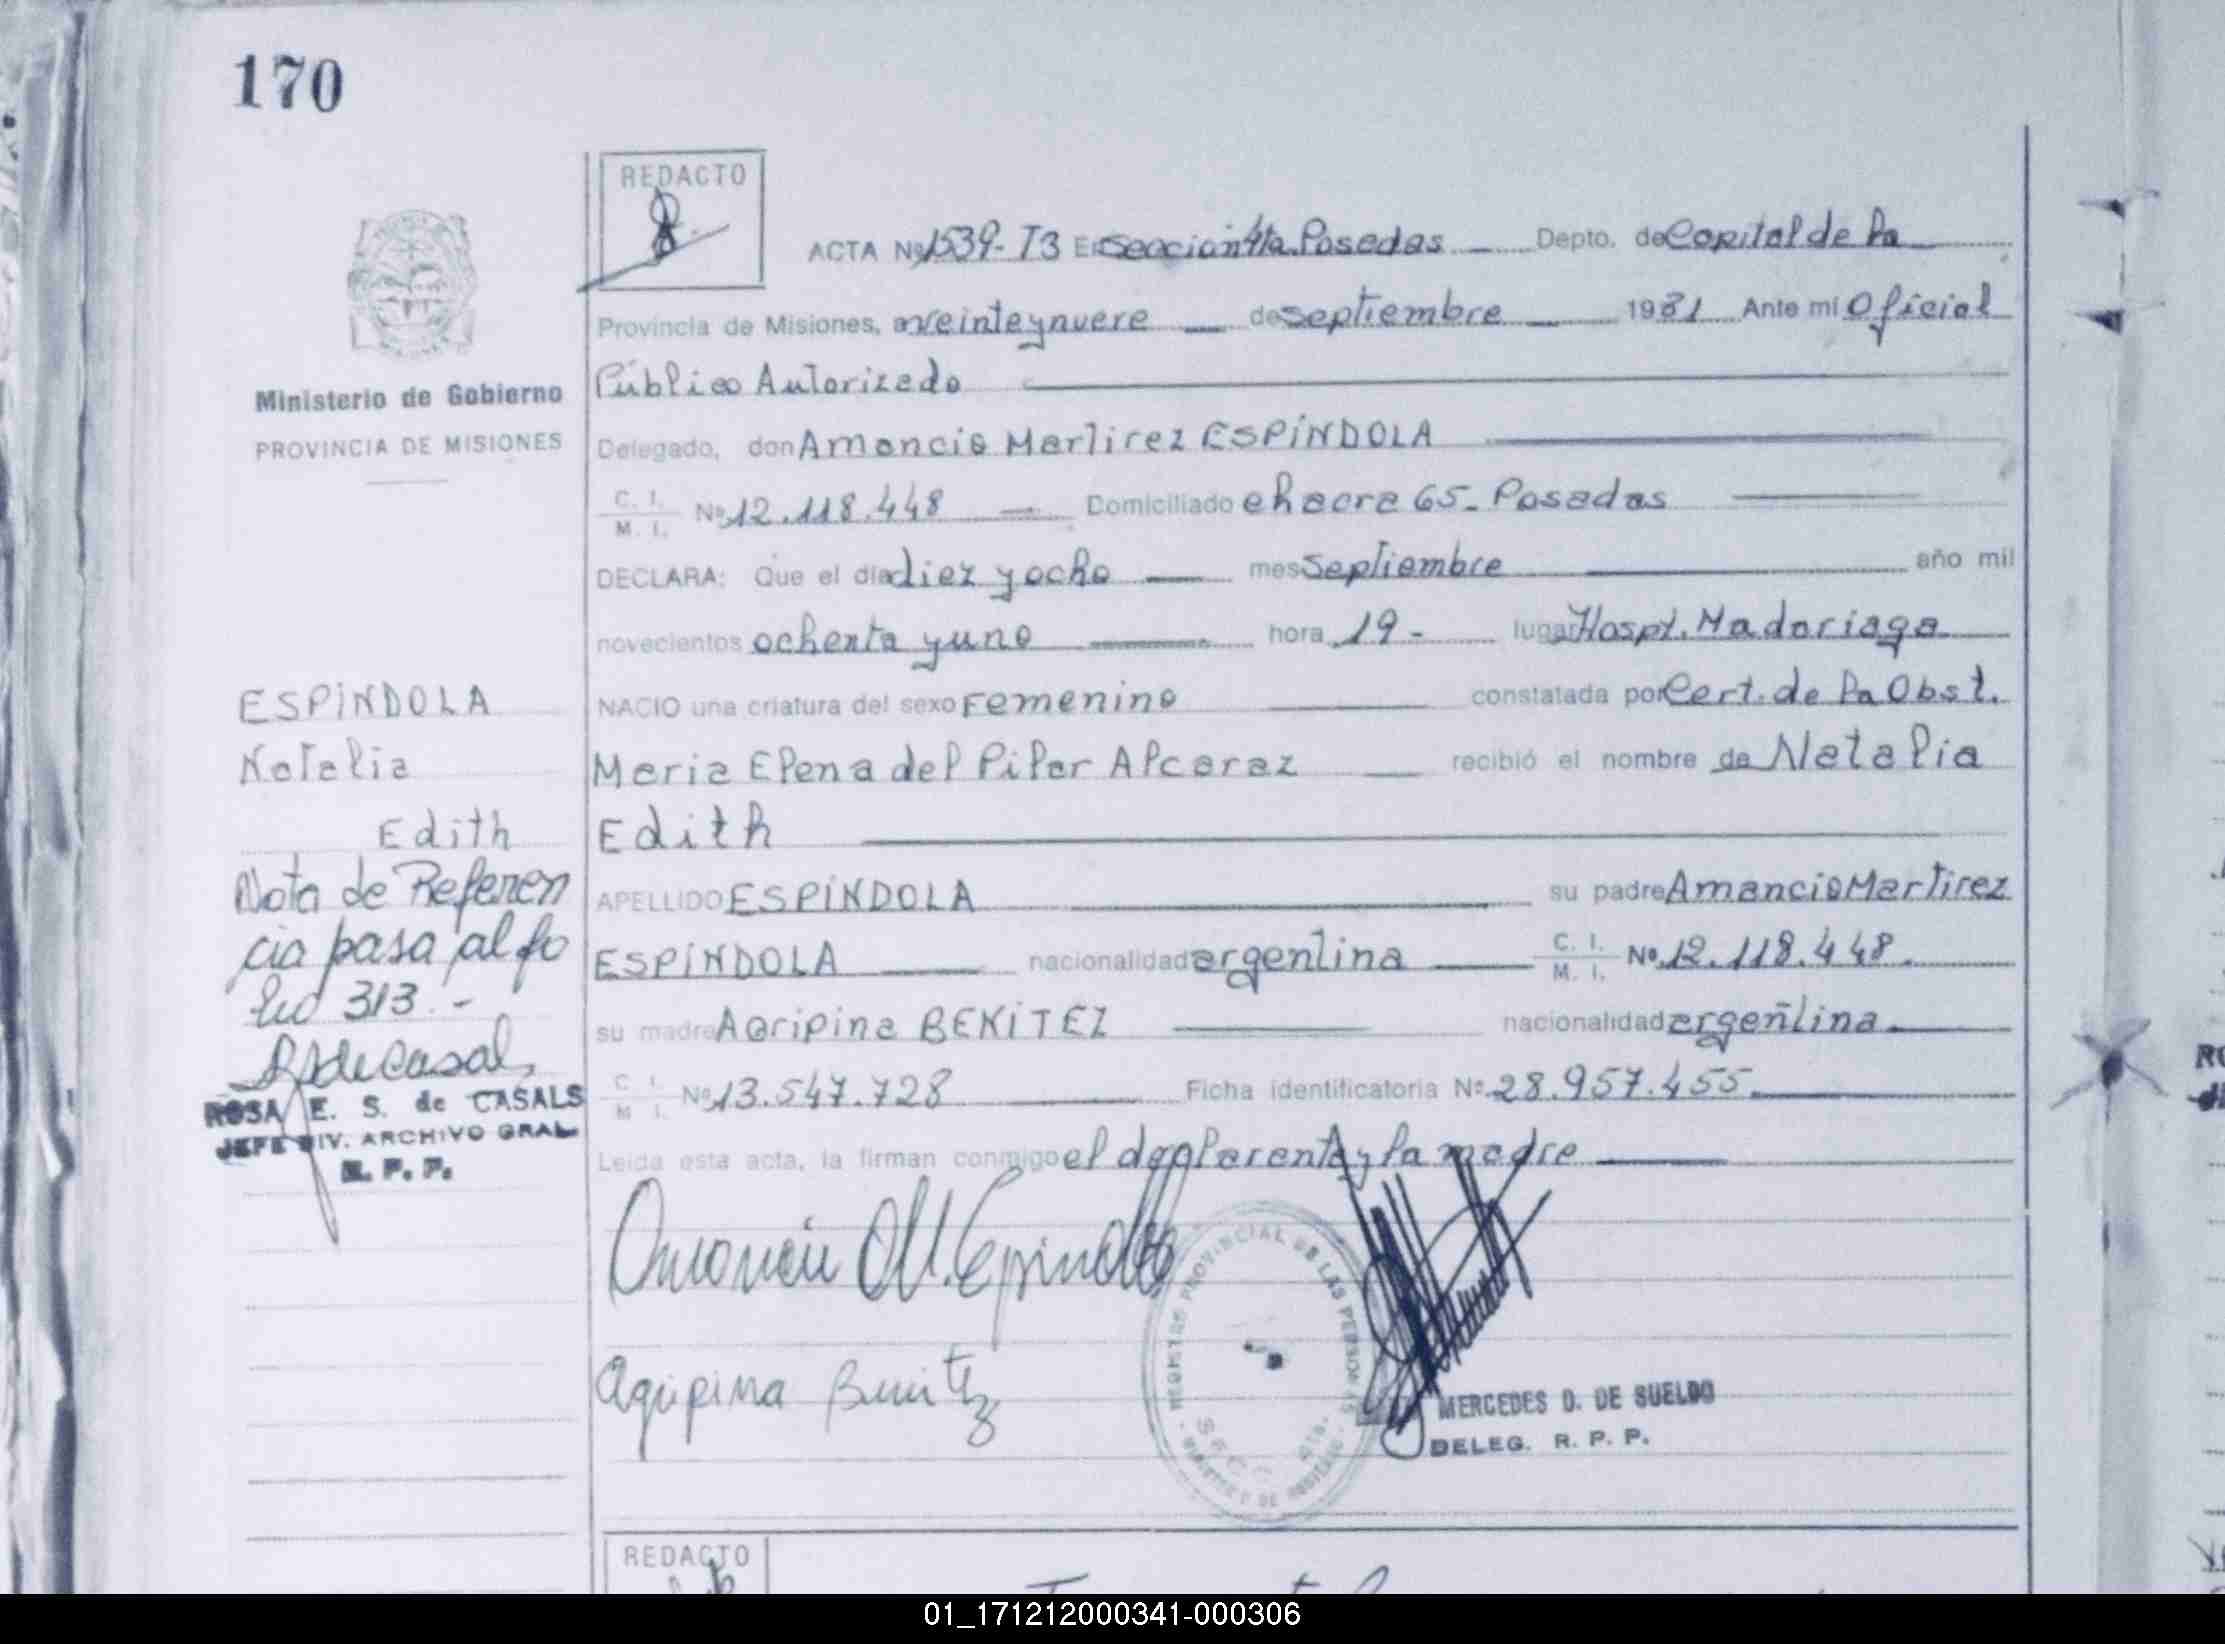 170
REDACTO
ACTA Nº 1539-T3 En Sección 4ta. Posadas Depto. de Capital de la
Provincia de Misiones, a veinteynueve de septiembre 1981 Ante mi Oficial
Público Autorizado
Ministerio de Gobierno
PROVINCIA DE MISIONES
Delegado, don Amancio Martirez ESPÍNDOLA
C. I.
M. I. Nº 12.118.448 Domiciliado chacra 65- Posadas
DECLARA: Que el día diez y ocho mes septiembre año mil
novecientos ochenta y uno hora 19- lugar Hospt. Madariaga
NACIO una criatura del sexo Femenino constatada por Cert. de la Obst.
Maria Elena del Pilar Alcaraz recibió el nombre de Natalia
Edith
APELLIDO ESPÍNDOLA su padre Amancio Martirez
ESPÍNDOLA nacionalidad argentina C. I. M. I. Nº 12.118.448.
su madre Agripina BENITEZ nacionalidad argentina
C. I. M. I. Nº 13.547.728 Ficha identificatoria Nº 28.957.455
Leída esta acta, la firman conmigo el declarante y la madre
ESPÍNDOLA
Natalia
Edith
Nota de Referen
cia pasa al fo
lio 313.-
RSdeCasal
ROSA E. S. de CASALS
JEFE DIV. ARCHIVO GRAL
R. P. P.
Amancio M. Espindola
Agripina Benitez
REGISTRO PROVINCIAL DE LAS PERSONAS
MERCEDES D. DE SUELDO
DELEG. R. P. P.
REDACTO
01_171212000341-000306